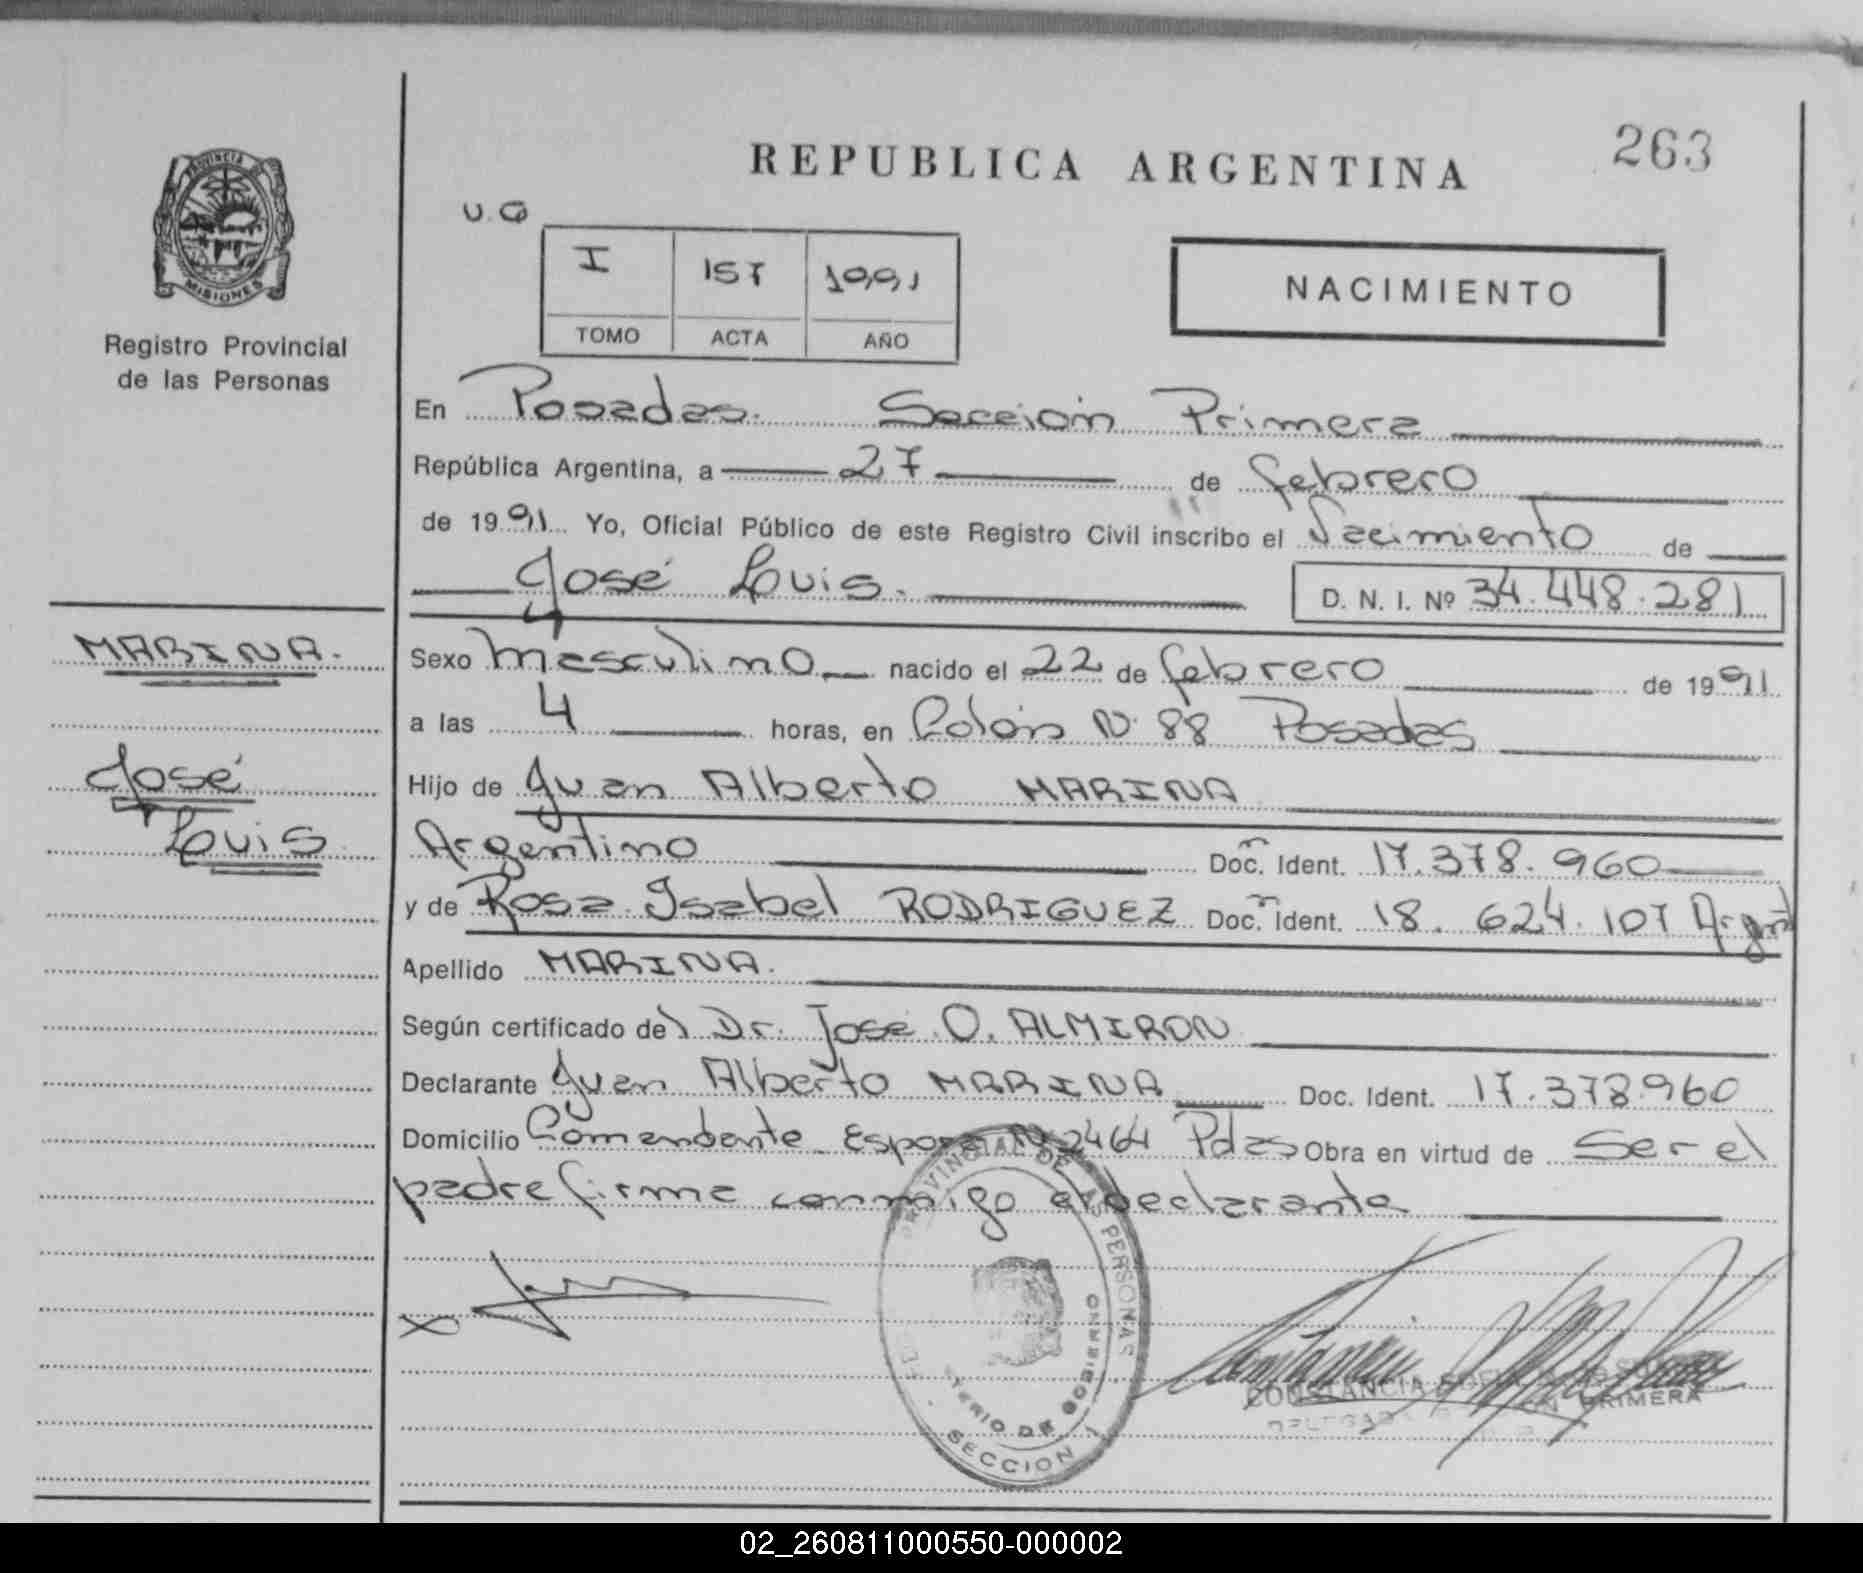 263
REPUBLICA ARGENTINA
U.G
I 157 1991
TOMO ACTA AÑO
NACIMIENTO
PROVINCIA DE
MISIONES
Registro Provincial
de las Personas
En Posadas. Sección Primera
República Argentina, a 27 de febrero
de 1991 Yo, Oficial Público de este Registro Civil inscribo el Nacimiento de
José Luis. D. N. I. Nº 34.448.281
MARINA.
José
Luis
Sexo Masculino nacido el 22 de febrero de 1991
a las 4 horas, en Colón N. 88 Posadas
Hijo de Juan Alberto MARINA
Argentino Doc. Ident. 17.378.960
y de Rosa Isabel RODRIGUEZ Doc. Ident. 18.624.107 Argna
Apellido MARINA.
Según certificado del Dr. José O. ALMIRON
Declarante Juan Alberto MARINA Doc. Ident. 17.378.960
Domicilio Comandante Espora Nº 2464 Pdas Obra en virtud de ser el
padre firma conmigo el declarante
PROVINCIAL DE LAS PERSONAS
DE GOBIERNO
SECCION 1
CONSTANCIA
PRIMERA
02_260811000550-000002